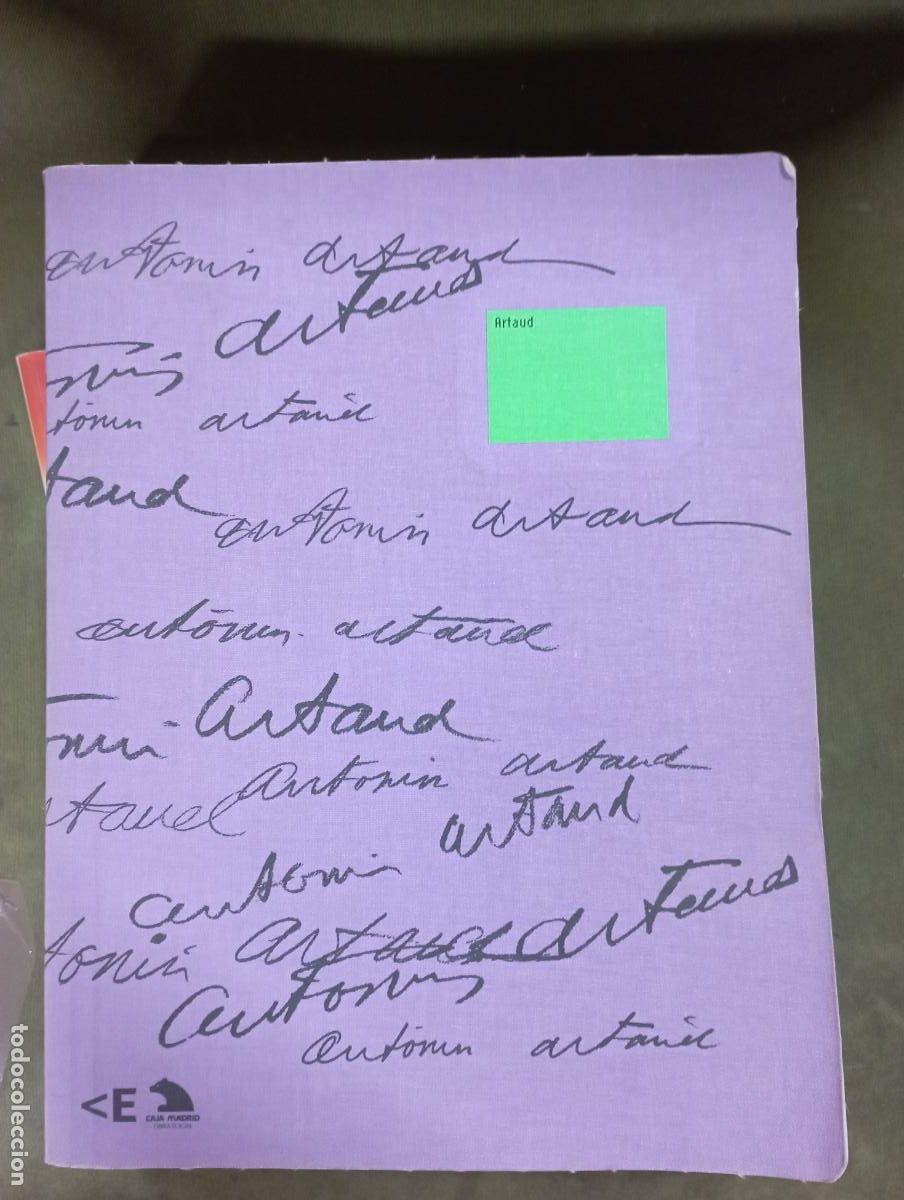 antonin artaud
Artaud
Artaud
onin
tonin artaud
taud
antonin artaud
antonin artaud
onin Artaud
antonin artaud
rtaud
artaud
antonin
tonin Artaud Artaud
antonin
antonin artaud
<E CAJA MADRID
OBRA SOCIAL
todocoleccion